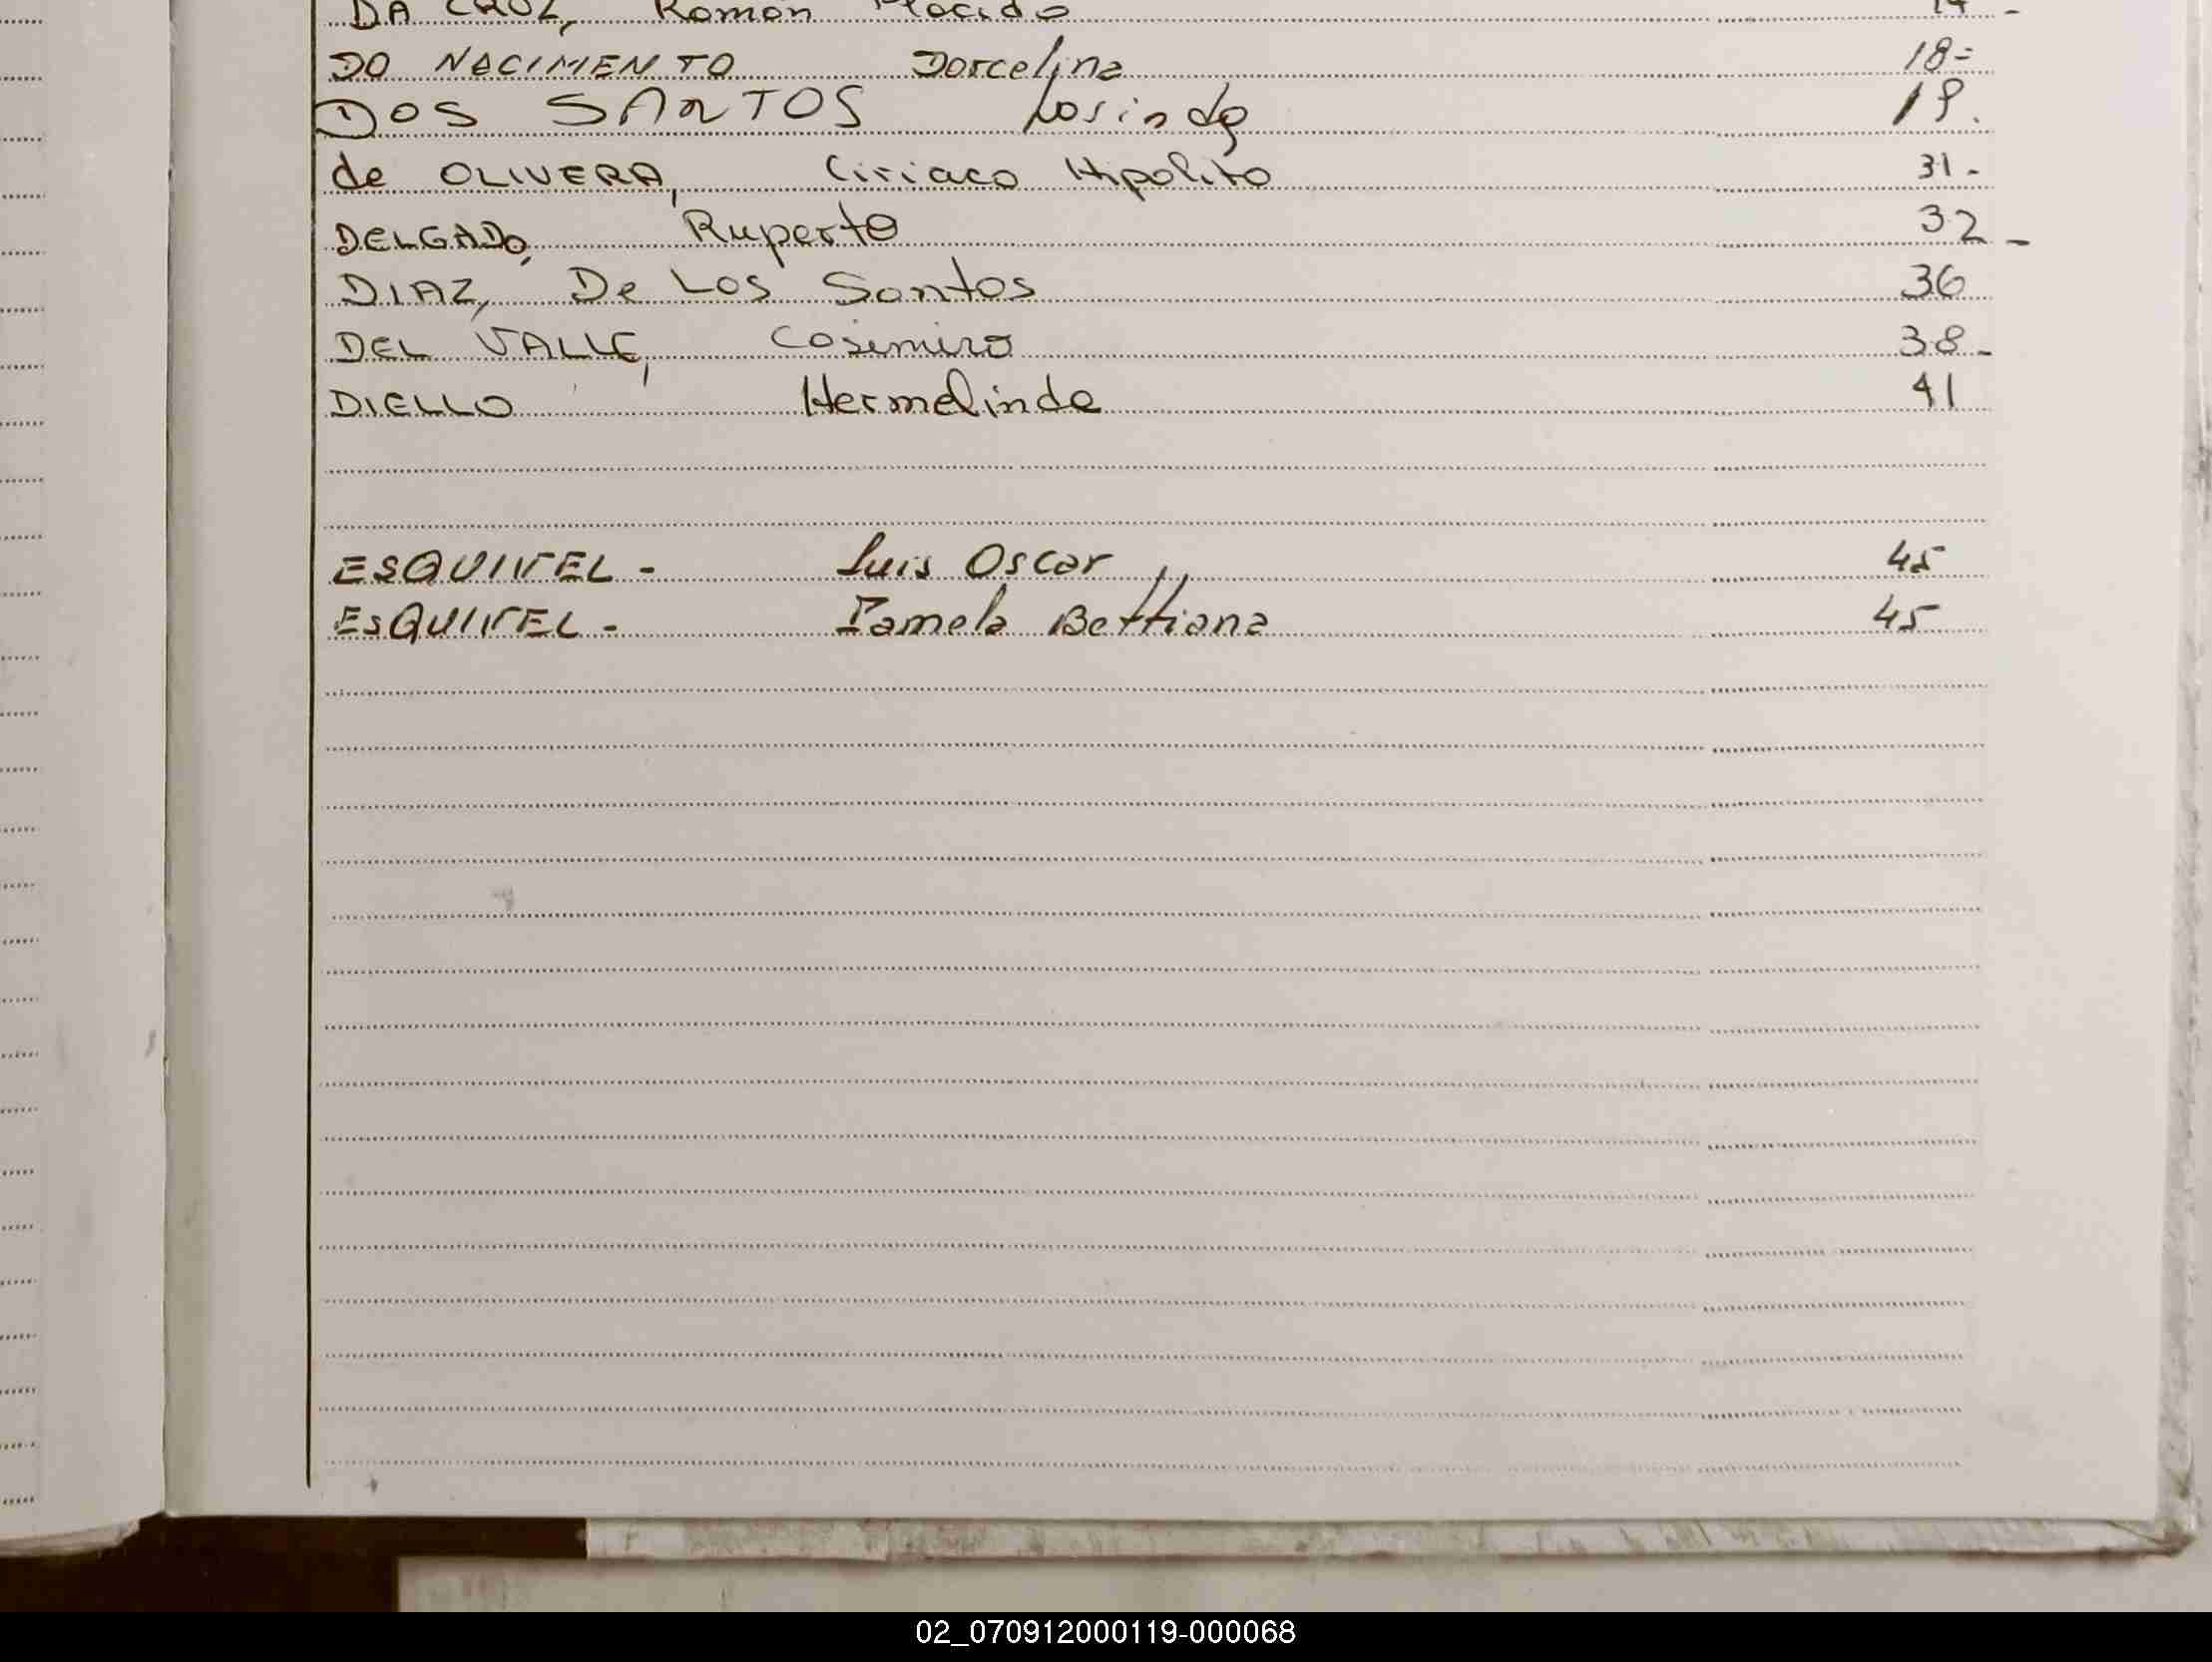 DA CRUZ, Ramón Placido 14 -
DO NACIMENTO Dorcelina 18=
DOS SANTOS 19.
de OLIVERA, Ciriaco Hipolito 31-
DELGADO, Ruperto 32-
DIAZ, De Los Santos 36
DEL VALLE, Casimiro 38-
DIELLO Hermelinda 41
ESQUIVEL - Luis Oscar 45
ESQUIVEL - Pamela Bettiana 45
02_070912000119-000068